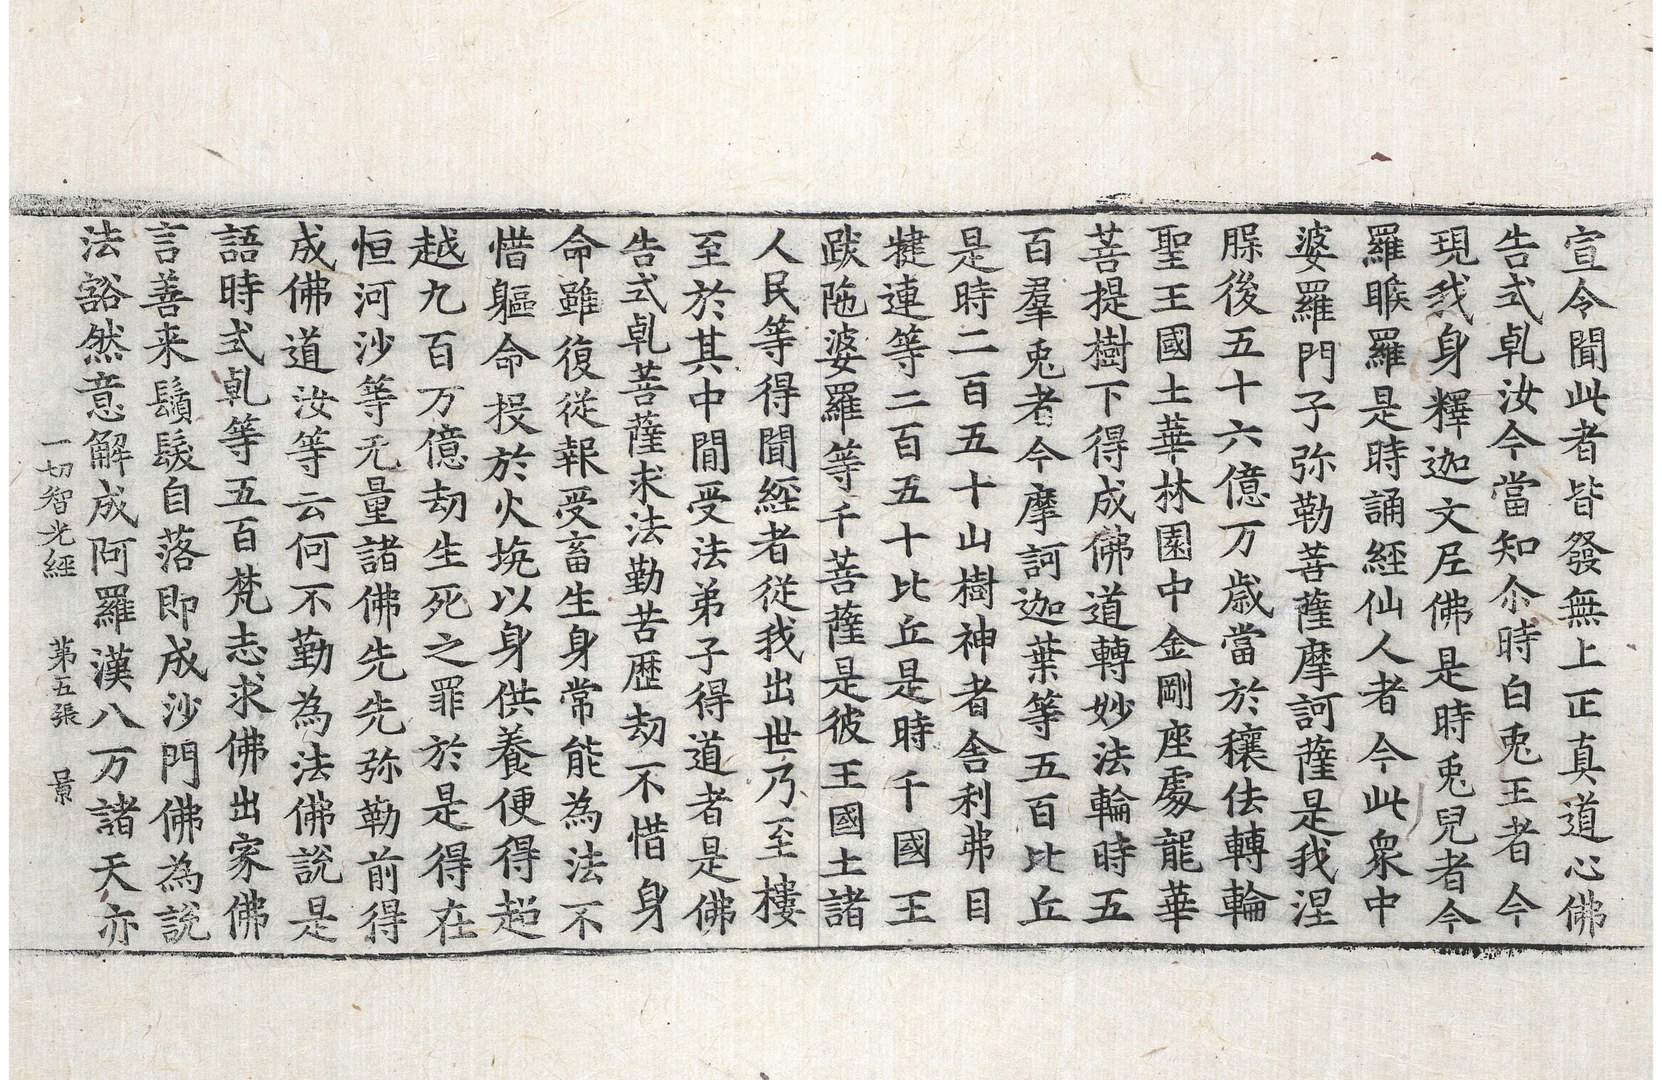 宣令聞此者皆發無上正真道心佛
告式乹汝今當知尒時白兎王者今
現我身釋迦文尼佛是時兎兒者今
羅睺羅是時誦經仙人者今此衆中
婆羅門子弥勒菩薩摩訶薩是我涅
槃後五十六億万歲當於穰佉轉輪
聖王國土華林園中金剛座處龍華
菩提樹下得成佛道轉妙法輪時五
百羣兎者今摩訶迦葉等五百比丘
是時二百五十山樹神者舍利弗目
揵連等二百五十比丘是時千國王
跋陁婆羅等千菩薩是彼王國土諸
人民等得聞經者從我出世乃至樓
至於其中間受法弟子得道者是佛
告式乹菩薩求法勤苦歷劫不惜身
命雖復從報受畜生身常能為法不
惜軀命投於火埦以身供養便得超
越九百万億劫生死之罪於是得在
恒河沙等无量諸佛先先弥勒前得
成佛道汝等云何不勤為法佛說是
語時式乹等五百梵志求佛出家佛
言善来鬚髮自落即成沙門佛為說
法豁然意解成阿羅漢八万諸天亦
一切智光經 第五張 景